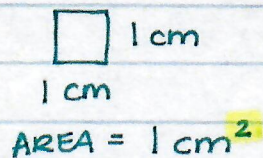 1 cm
1 cm
AREA = 1 cm²